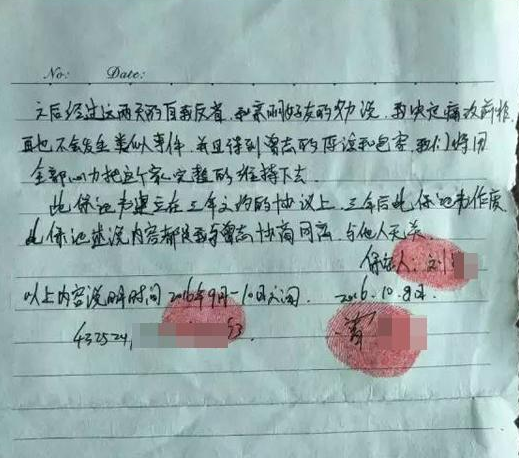 No: Date:
之后经过这两天的自我反省，和亲朋好友的劝说，我决定痛改前非
再也不会发生类似事件，并且得到曾志的原谅和包容，我们将用
全部心力把这个家完整的维持下去
此保证书建立在三年之约的协议上，三年后此保证书作废
此保证述说内容都是我与曾志协商同意，与他人无关
保证人：刘
以上内容说明时间2016年9月-10月之间. 2016.10.8日.
432524, 53.
曾